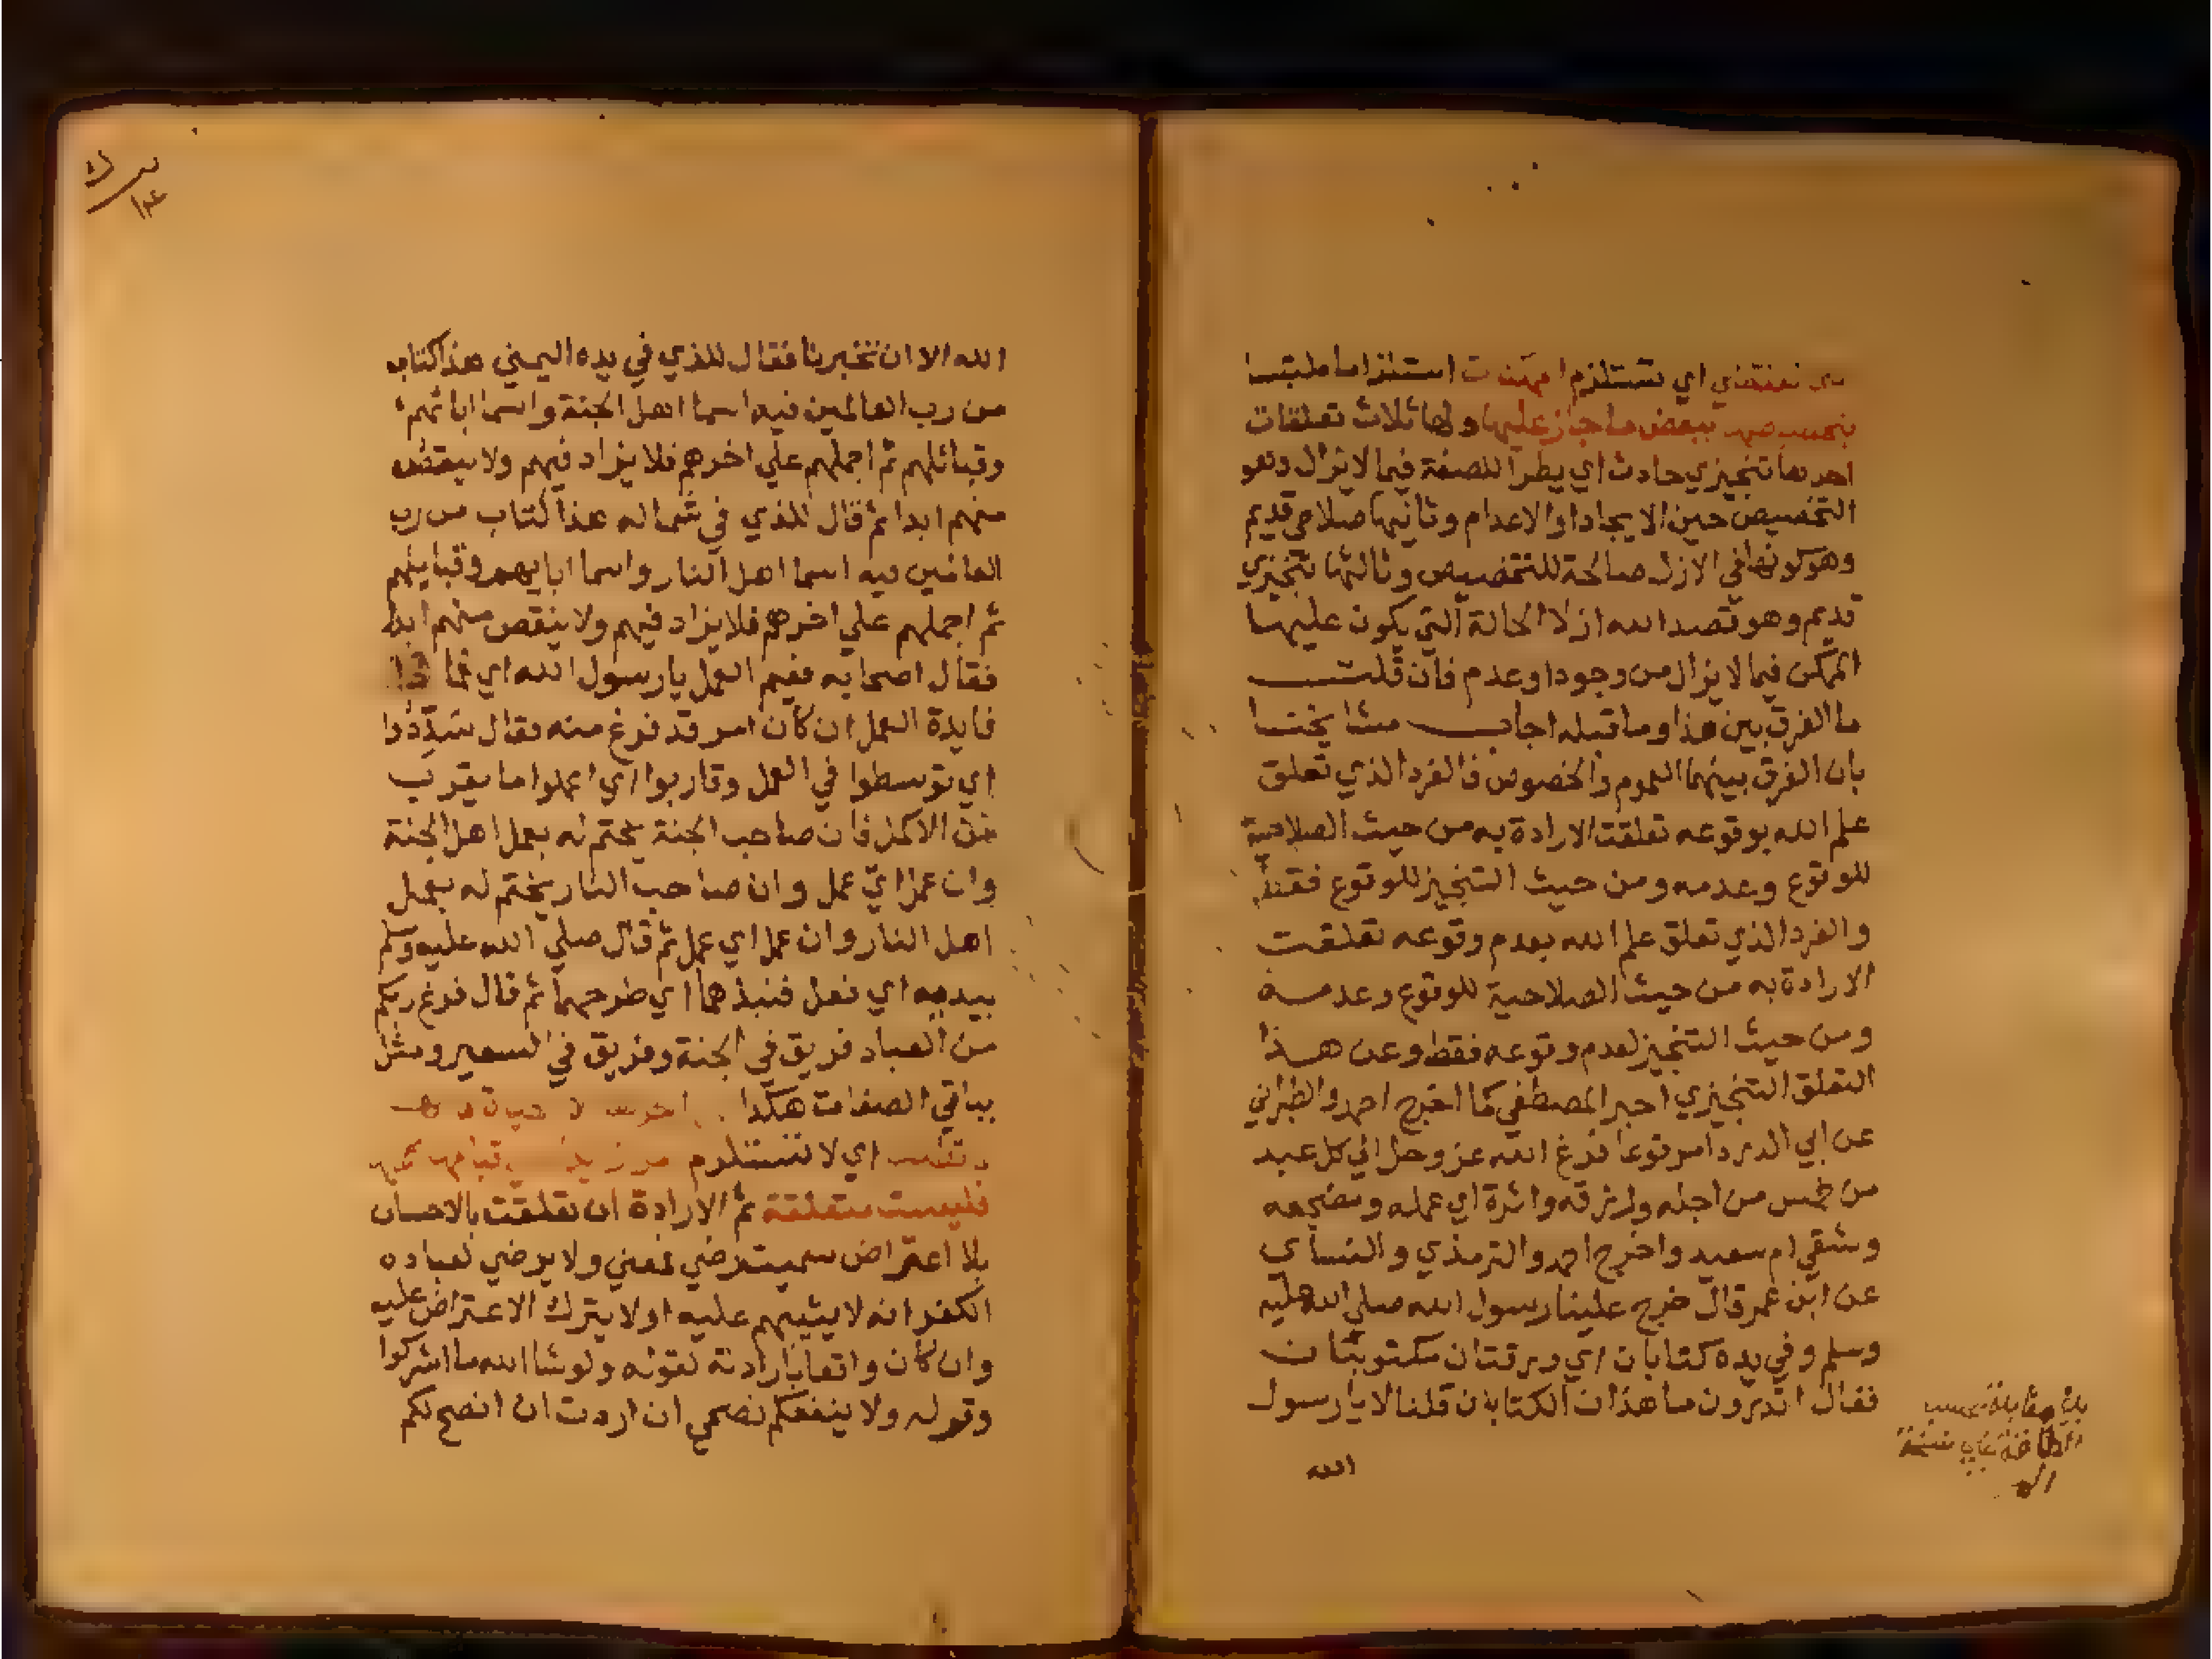 اي تستلزم استلزاما ملتبسا
ببعض ما جاز عليها ولها ثلاث تعلقات
احدها تنجيزي حادث اي يطرا للصفة فيما لا يزال وهو
التخصيص حين الايجاد او الاعدام وثانيها صلاحي قديم
وهو كونها في الازل صالحة للتخصيص وثالثها تنجيزي
قديم وهو قصد الله ازلا الحالة التي يكون عليها
الممكن فيما لا يزال من وجود او عدم فان قلت
ما الفرق بين هذا وما قبله اجاب مشايخنا
بان الفرق بينهما العموم والخصوص فالفرد الذي تعلق
علم الله بوقوعه تعلقت الارادة به من حيث الصلاحية
للوقوع وعدمه ومن حيث التنجيز للوقوع فقط
والفرد الذي تعلق علم الله بعدم وقوعه تعلقت
الارادة به من حيث الصلاحية للوقوع وعدمه
ومن حيث التنجيز لعدم وقوعه فقط وعن هذا
التعلق التنجيزي اخبر المصطفي كما اخرج احمد والطبراني
عن ابي الدردا مرفوعا فرغ الله عز وجل الي كل عبد
من خمس من اجله ورزقه واثره اي عمله ومضجعه
وشقي ام سعيد واخرج احمد والترمذي والنساي
عن ابن عمر قال خرج علينا رسول الله صلي الله عليه
وسلم وفي يده كتابان اي ورقتان مكتوبتان
فقال اتدرون ما هذان الكتابان قلنا لا يا رسول
الله
بلغ مقابلة بحسب
الطاقة علي نسخة
الله الا ان تخبرنا فقال للذي في يده اليمني هذا كتاب
من رب العالمين فيه اسما اهل الجنة واسما ابائهم
وقبائلهم ثم اجملهم علي اخرهم فلا يزاد فيهم ولا ينقض
منهم ابدا ثم قال للذي في شماله هذا كتاب من رب
العالمين فيه اسما اهل النار واسما ابايهم وقبايلهم
ثم اجملهم علي اخرهم فلا يزاد فيهم ولا ينقص منهم ابدا
فقال اصحابه ففيم العمل يا رسول الله اي فما ذا
فايدة العمل ان كان امر قد فرغ منه فقال سددوا
اي توسطوا في العمل وقاربوا اي اعملوا ما يقرب
من الاكمل فان صاحب الجنة يختم له بعمل اهل الجنة
وان عمل اي عمل وان صاحب النار يختم له بعمل
اهل النار وان عمل اي عمل ثم قال صلي الله عليه وسلم
بيديه اي فعل فنبذهما اي طرحهما ثم قال فرغ ربكم
من العباد فريق في الجنة وفريق في السعير ومثل
بباقي الصفات هكذا
اي لا تستلزم
فليست متعلقة ثم الارادة ان تعلقت بالاحسان
بلا اعتراض سميت رضي فمعني ولا يرضي لعباده
الكفر انه لا يثيبهم عليه او لا يترك الاعتراض عليه
وان كان واقعا بارادته لقوله ولو شا الله ما اشركوا
وقوله ولا ينفعكم نصحي ان اردت ان انصح لكم